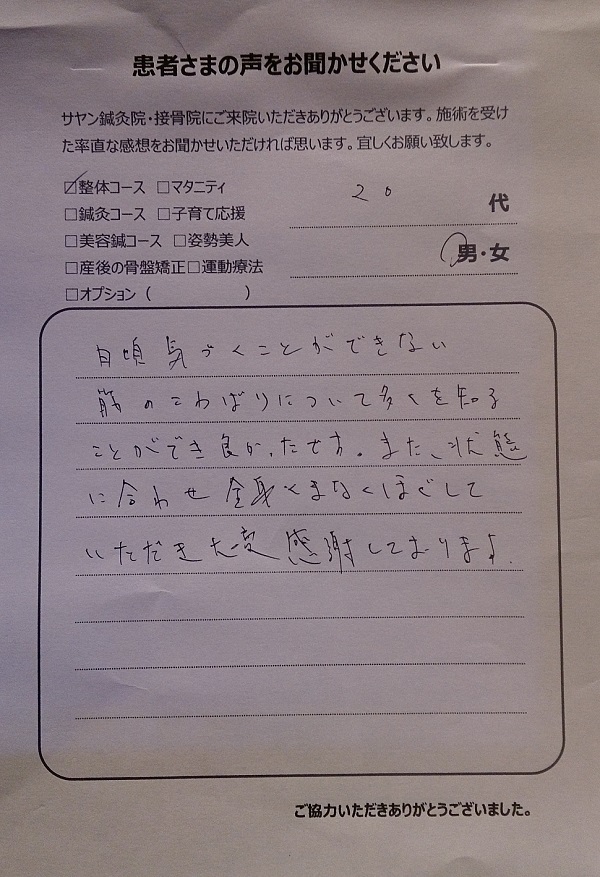 患者さまの声をお聞かせください
サヤン鍼灸院・接骨院にご来院いただきありがとうございます。施術を受け
た率直な感想をお聞かせいただければ思います。宜しくお願い致します。
☑整体コース □マタニティ
20 代
□鍼灸コース □子育て応援
□美容鍼コース □姿勢美人
男・女
□産後の骨盤矯正□運動療法
□オプション（ ）
日頃気づくことができない
筋のこわばりについて多くを知る
ことができ良かったです。また、状態
に合わせ全身くまなくほぐして
いただき大変感謝しております。
ご協力いただきありがとうございました。